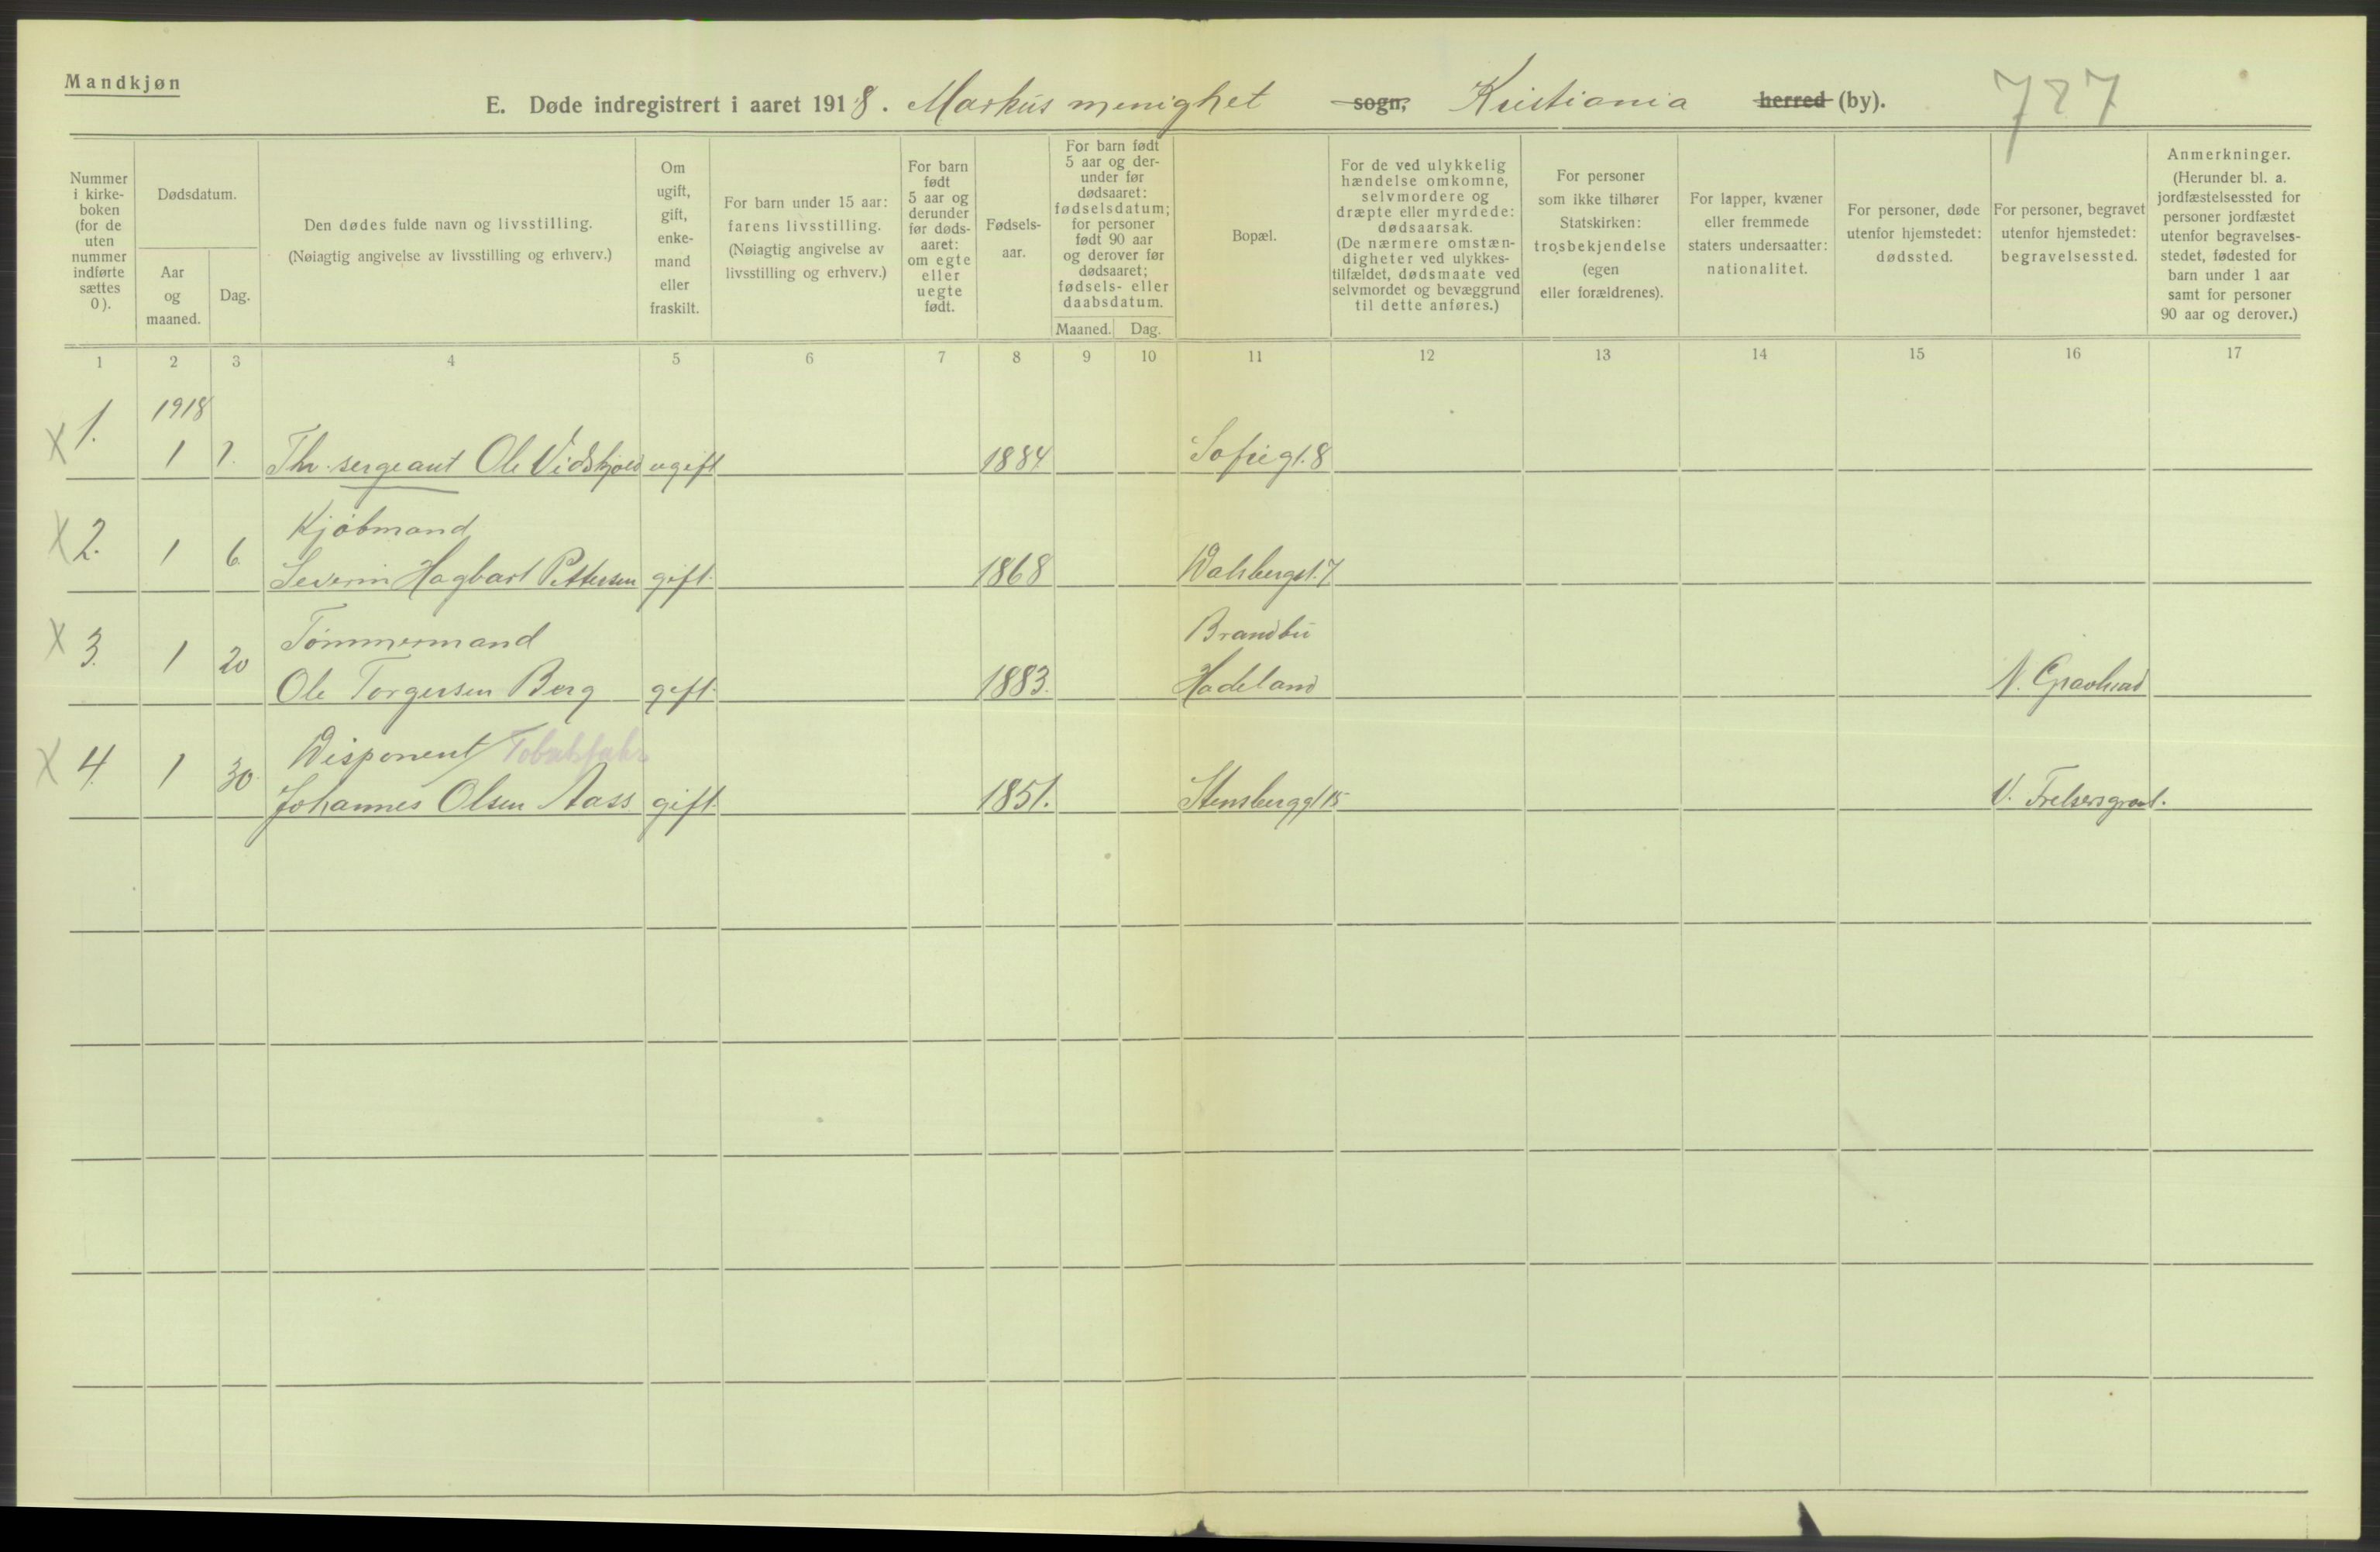 Mandkjøn
E. Døde indregistrert i aaret 1918. Markus menighet sogn, Kristiania herred (by). 727
Nummer i kirke-boken (for de uten nummer indførte sættes 0).
Dødsdatum.
Aar og maaned.
Dag.
Den dødes fulde navn og livsstilling.
(Nøiagtig angivelse av livsstilling og erhverv.)
Om ugift, gift, enke-mand eller fraskilt.
For barn under 15 aar: farens livsstilling.
(Nøiagtig angivelse av livsstilling og erhverv.)
For barn født 5 aar og derunder før døds-aaret: om egte eller uegte født.
Fødsels-aar.
For barn født 5 aar og der-under før dødsaaret: fødselsdatum; for personer født 90 aar og derover før dødsaaret; fødsels- eller daabsdatum.
Maaned. Dag.
Bopæl.
For de ved ulykkelig hændelse omkomne, selvmordere og dræpte eller myrdede: dødsaarsak.
(De nærmere omstæn-digheter ved ulykkes-tilfældet, dødsmaate ved selvmordet og bevæggrund til dette anføres.)
For personer som ikke tilhører Statskirken: trosbekjendelse (egen eller forældrenes).
For lapper, kvæner eller fremmede staters undersaatter: nationalitet.
For personer, døde utenfor hjemstedet: dødssted.
For personer, begravet utenfor hjemstedet: begravelsessted.
Anmerkninger.
(Herunder bl. a. jordfæstelsessted for personer jordfæstet utenfor begravelses-stedet, fødested for barn under 1 aar samt for personer 90 aar og derover.)
1 2 3 4 5 6 7 8 9 10 11 12 13 14 15 16 17
1918
X 1. 1 Th. sergeant Ole Vidskjold ugift 1884 Sofiegt. 8
Kjøbmand
X 2. 1 6. Severin Hagbart Pettersen gift. 1868 7
Tømmermand Brandbu
X 3. 1 20 Ole Torgersen Berg gift. 1883. Hadeland N. Gravlund
Disponent Tobaksfabr
X 4. 1 30. Johannes Olsen Aass gift. 1851. Stensberggt 15 V. Frelsersgravl.